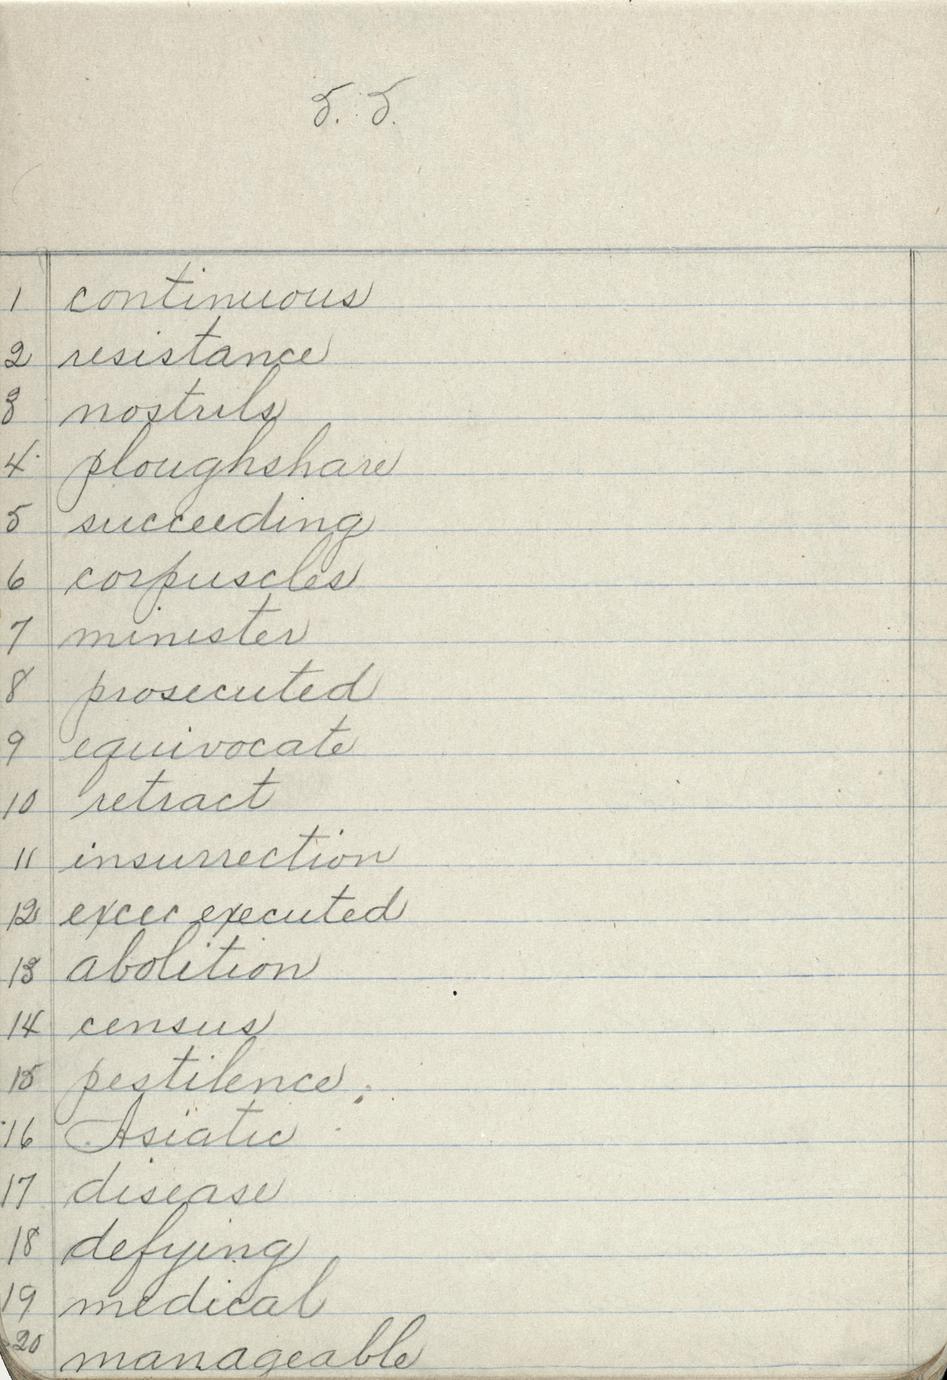 5. 5.
1 continuous
2 resistance
3 nostrils
4 ploughshare
5 succeeding
6 corpuscles
7 minister
8 prosecuted
9 equivocate
10 retract
11 insurrection
12 excec executed
13 abolition
14 census
15 pestilence.
16 Asiatic
17 disease
18 defying
19 medical
20 manageable